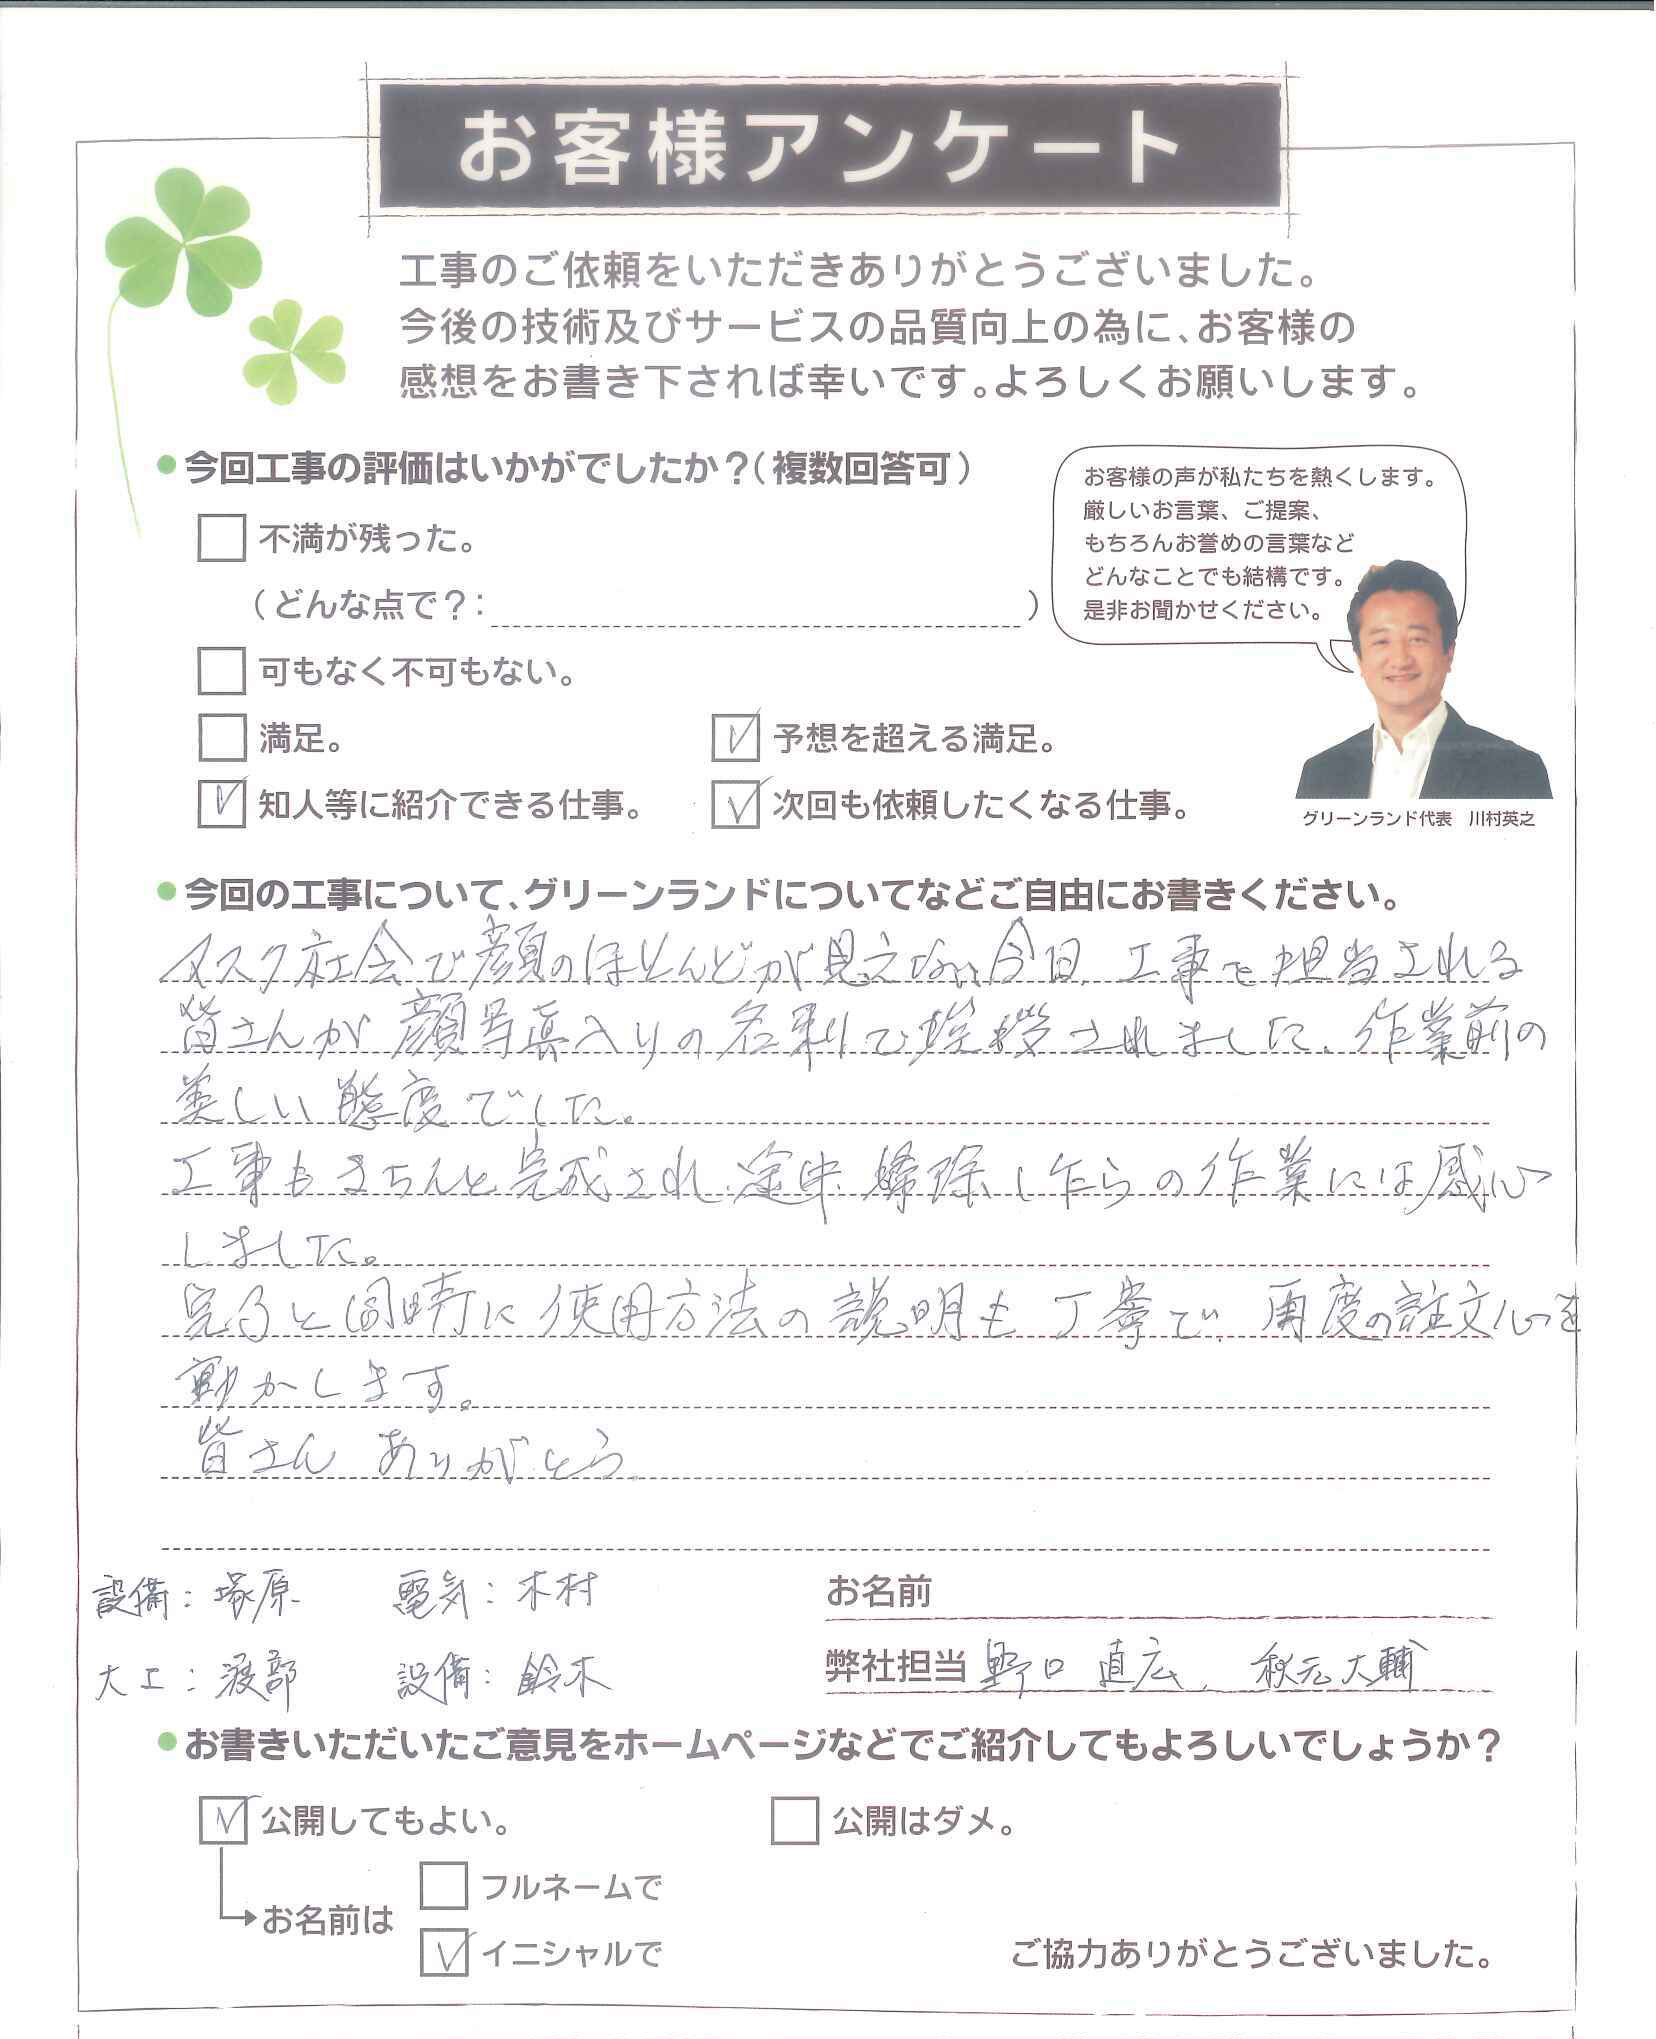 お客様アンケート
工事のご依頼をいただきありがとうございました。
今後の技術及びサービスの品質向上の為に、お客様の
感想をお書き下されば幸いです。よろしくお願いします。
●今回工事の評価はいかがでしたか?(複数回答可)
お客様の声が私たちを熱くします。
厳しいお言葉、ご提案、
もちろんお誉めの言葉など
どんなことでも結構です。
是非お聞かせください。
不満が残った。
(どんな点で?: )
可もなく不可もない。
満足。
予想を超える満足。
知人等に紹介できる仕事。
次回も依頼したくなる仕事。
グリーンランド代表 川村英之
●今回の工事について、グリーンランドについてなどご自由にお書きください。
マスク社会で顔のほとんどが見えない今日、工事を担当される
皆さんが顔写真入りの名刺で挨拶されました。作業前の
美しい態度でした。
工事もきちんと完成され、途中、掃除し乍らの作業には感心
しました。
完了と同時に使用方法の説明も丁寧で、再度の註文心を
動かします。
皆さん ありがとう
設備:塚原 電気:木村
大工:渡部 設備:鈴木
お名前
弊社担当 野口直広、秋元大輔
●お書きいただいたご意見をホームページなどでご紹介してもよろしいでしょうか?
公開してもよい。
公開はダメ。
フルネームで
お名前は
イニシャルで
ご協力ありがとうございました。